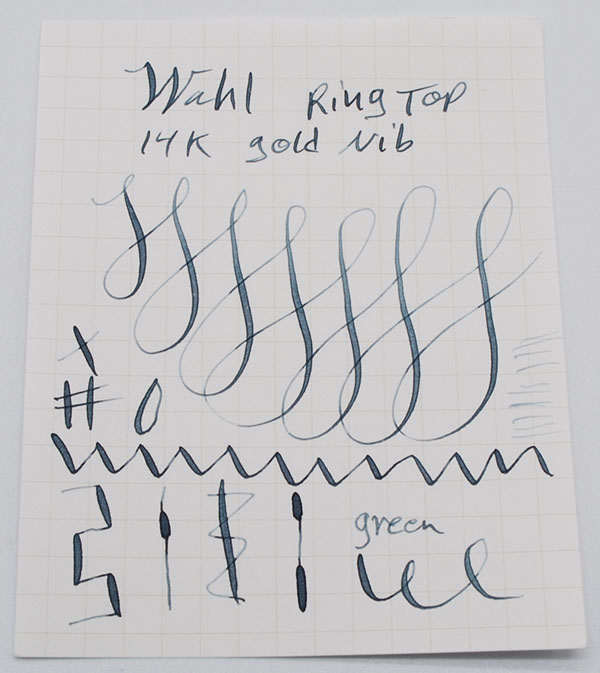 Wahl Ring Top
14K gold Nib
x
# 0
green